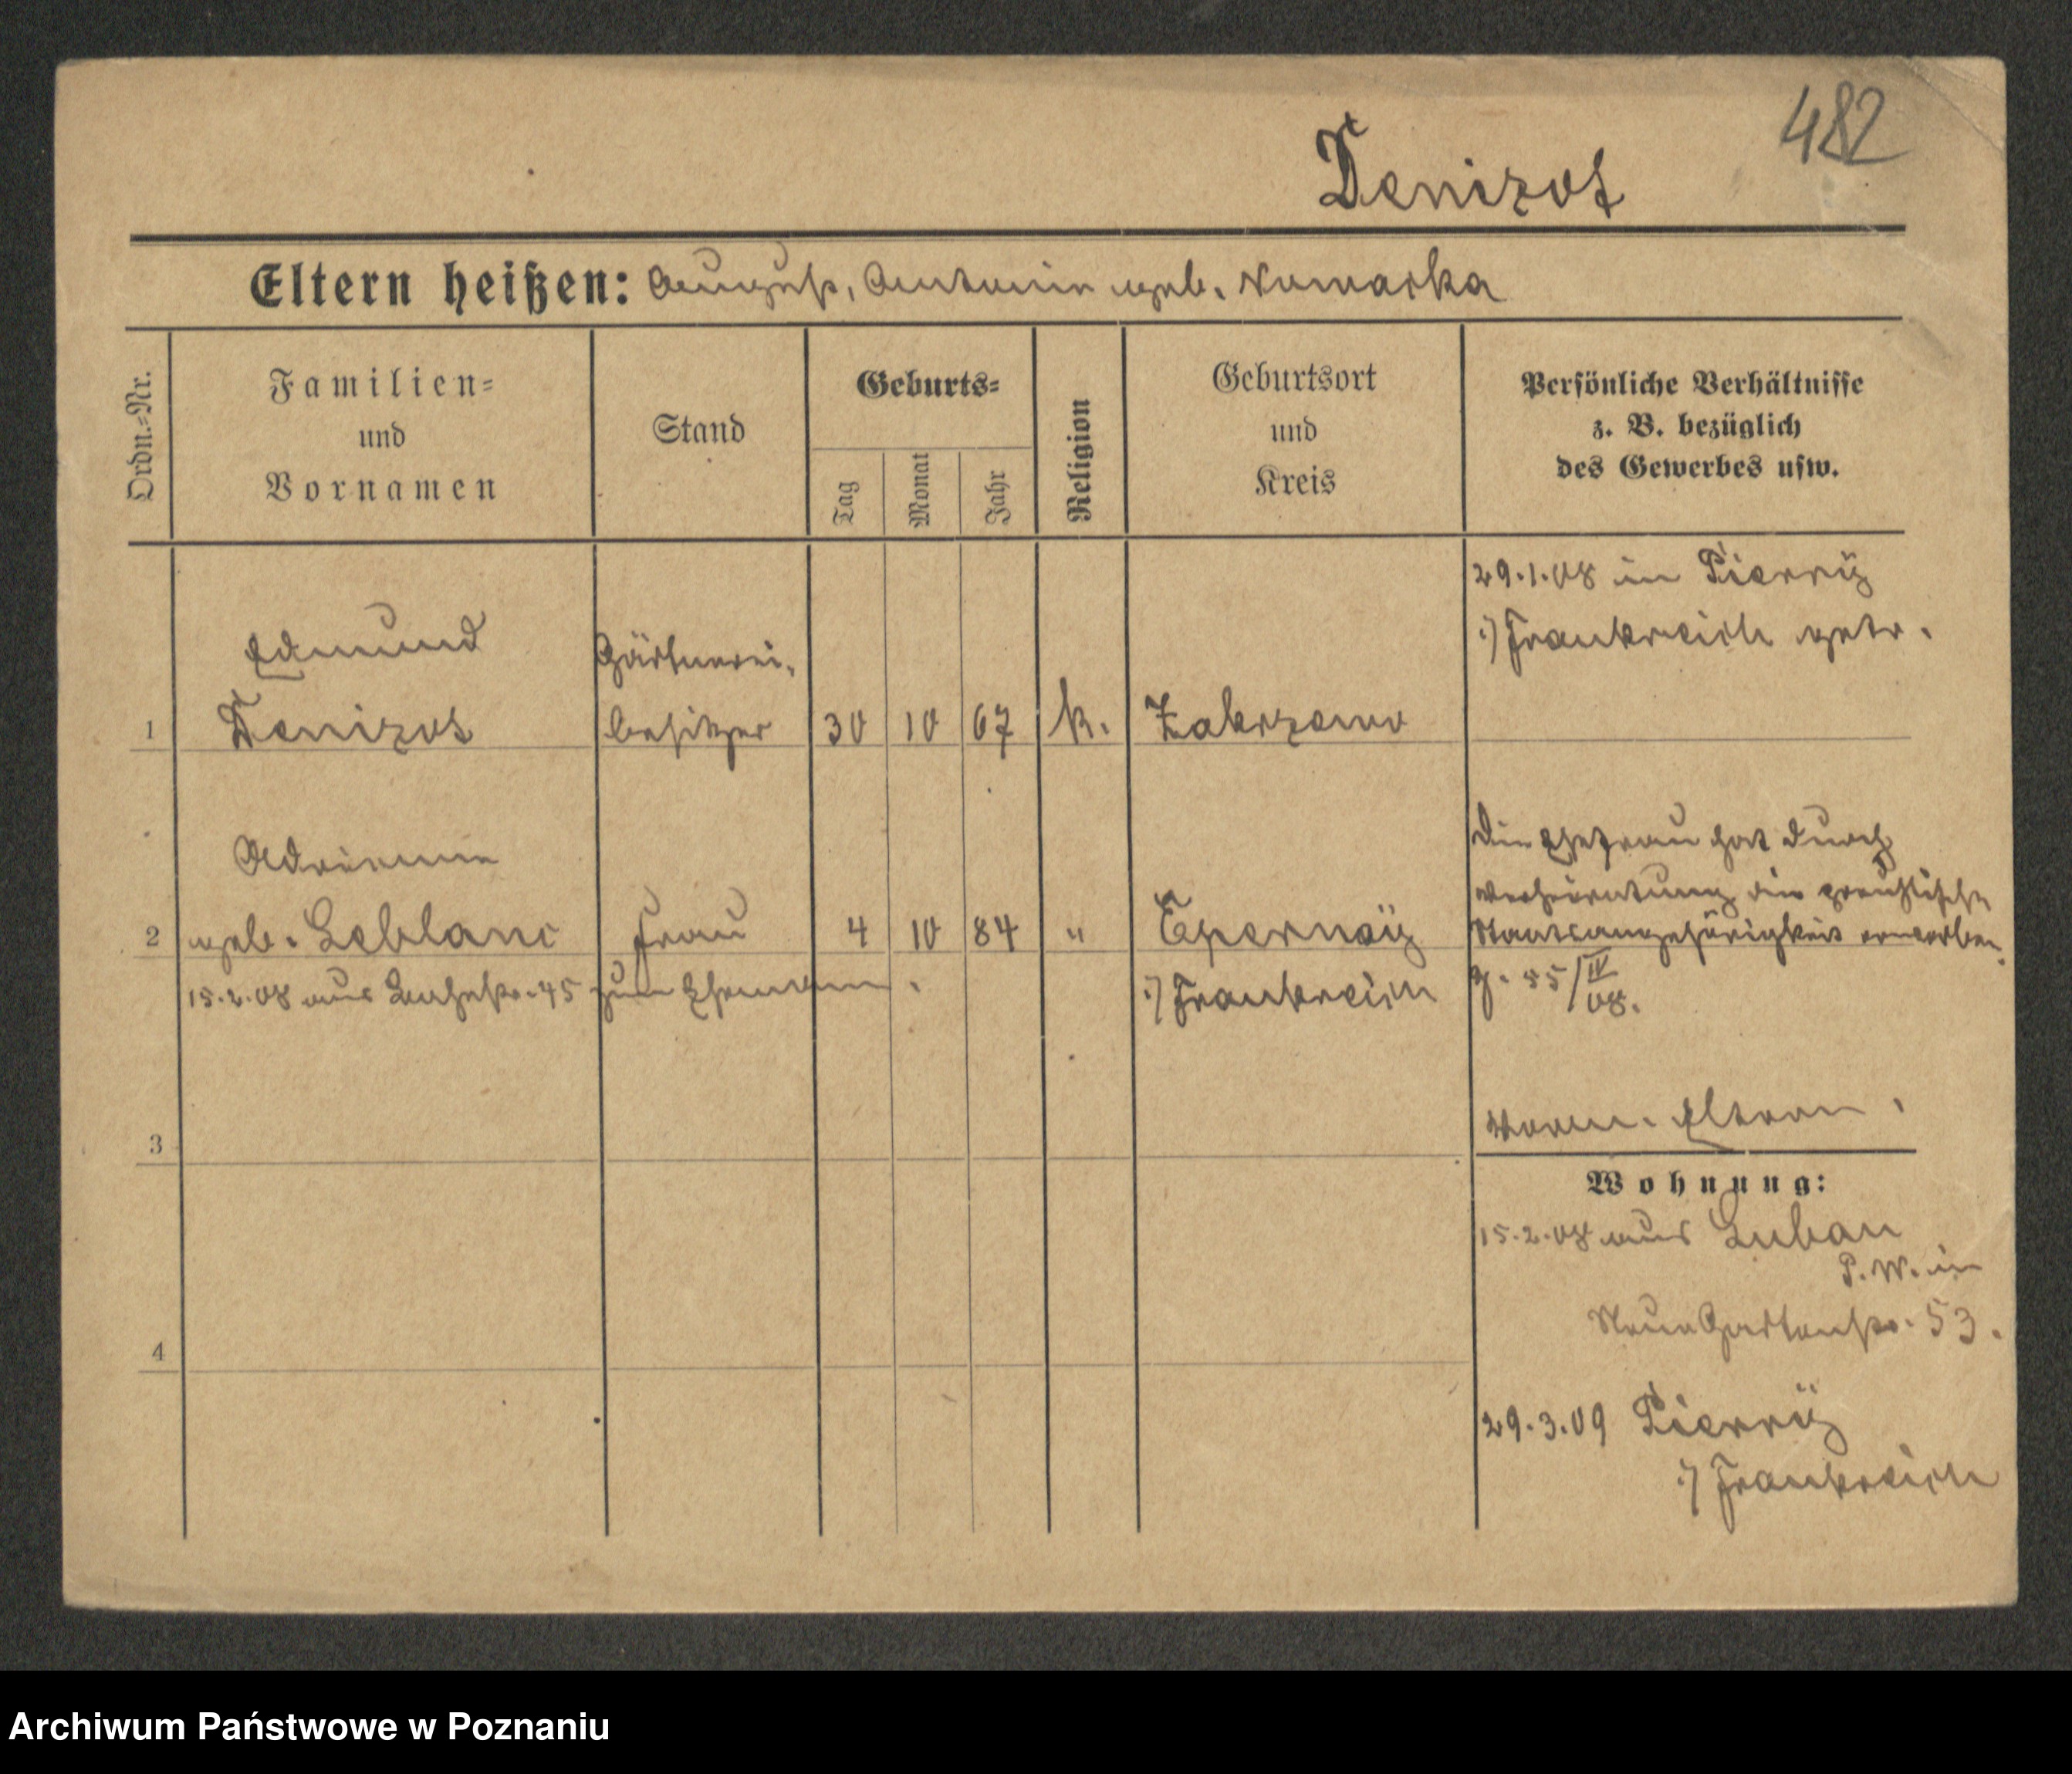 482
Denizot
Eltern heißen: August, Antonie geb. Nowacka
Ordn.-Nr.
Familien-
und
Vornamen
Stand
Geburts-
Tag
Monat
Jahr
Religion
Geburtsort
und
Kreis
Persönliche Verhältnisse
z. B. bezüglich
des Gewerbes usw.
29.1.08 in Pierry
:/ Frankreich getr.
Edmund
Denizot
Gärtnerei-
besitzer
1
30 10 67 k. Zakrzewo
Adrienne
2 geb. Leblanc Frau 4 10 84 " Epernay
:/ Frankreich
15.2.08 aus 45 zum Ehemann.
Die Ehefrau hat durch
Verheiratung die preußische
Staatsangehörigkeit erworben.
55/IV
08.
3
Eltern.
Wohnung:
15.2.08 aus Luban
P. W. in
Neue Gartenstr. 53.
4
29.3.09 Pierry
:/ Frankreich
Archiwum Państwowe w Poznaniu